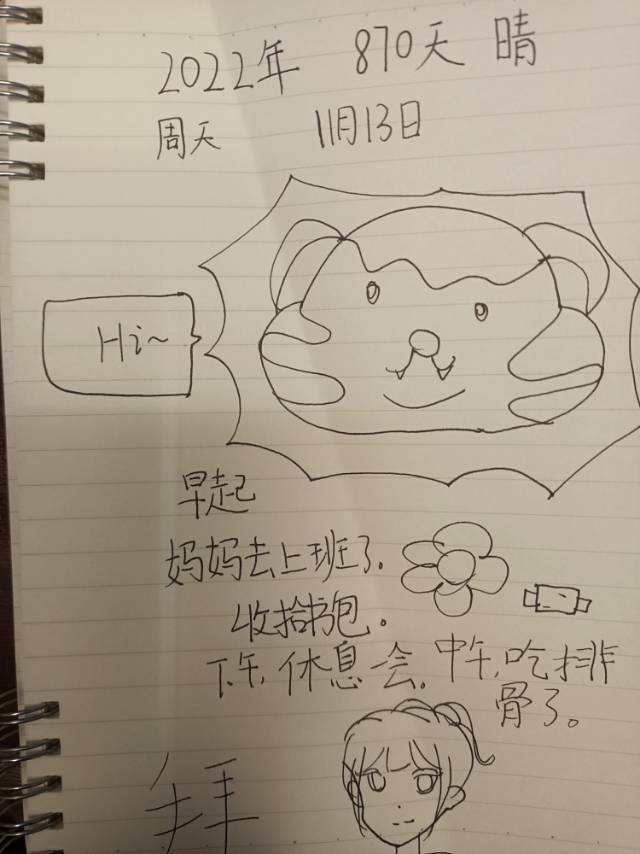 2022年 870天 晴
周天 11月13日
Hi~
早起
妈妈去上班了.
收拾书包.
下午,休息会.中午,吃排
骨了。
拜